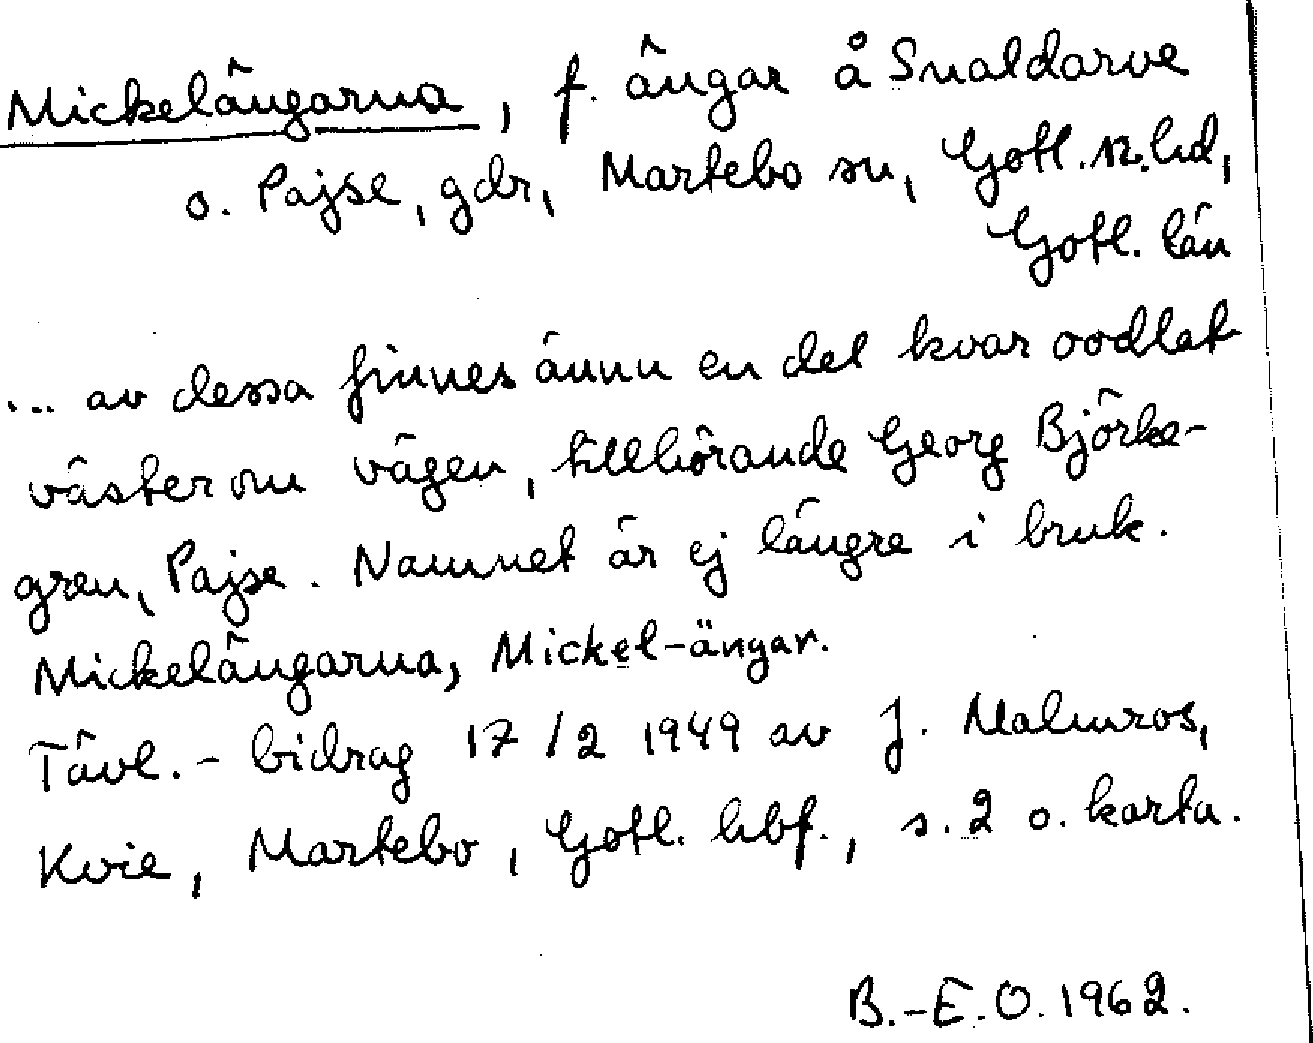 Mickelängarna, f. ängar å Snaldarve
o. Pajse, gdr, Martebo sn, Gotl. n. hd,
Gotl. län
... av dessa finnes ännu en del kvar oodlat
väster om vägen, tillhörande Georg Björke-
gren, Pajse. Namnet är ej längre i bruk.
Mickelängarna, Mickel-ängar.
Tävl. - bidrag 17/2 1949 av J. Malmros,
Kvie, Martebo, Gotl. hbf., s. 2 o. karta.
B.-E.O. 1962.